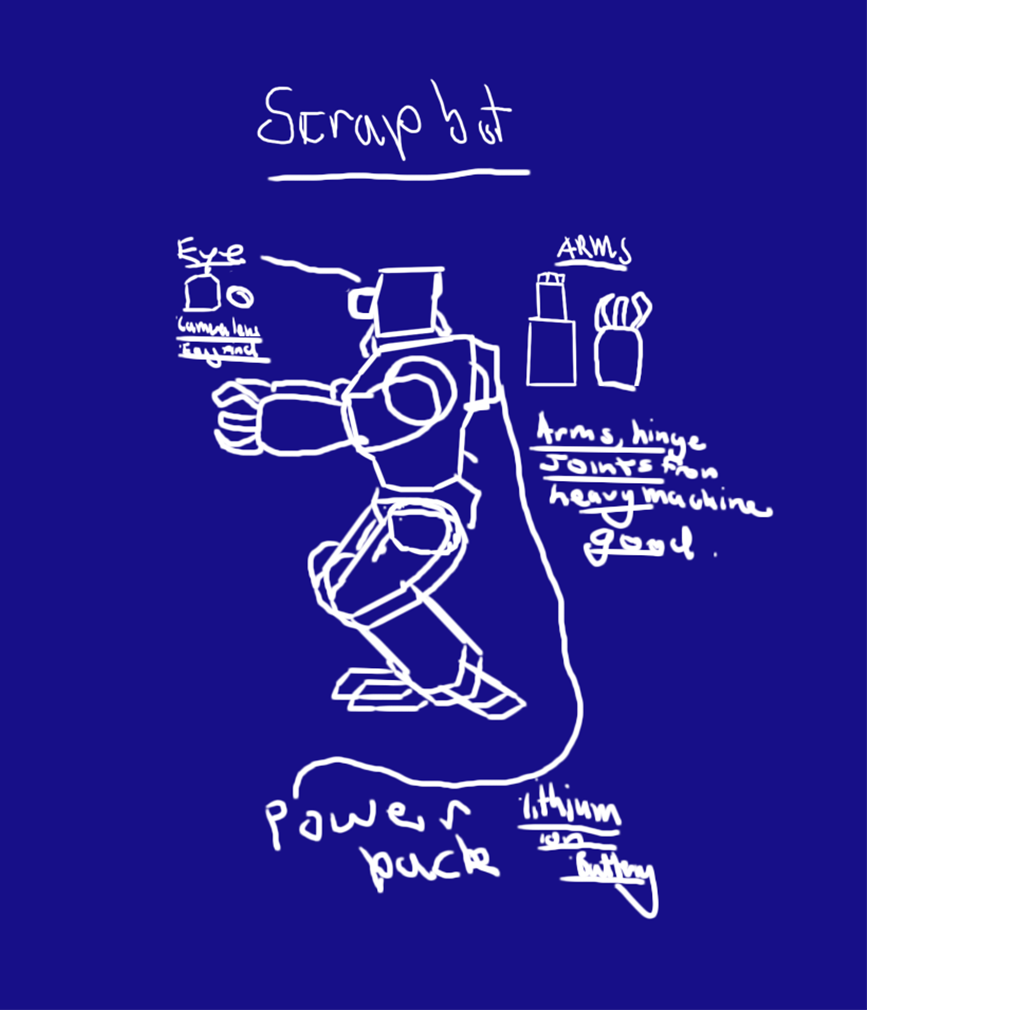 Scrap bot
Eye
Camera lens
ARMS
Arms, hinge
Joints from
heavy machine
good.
Power
pack
lithium
ion
Battery